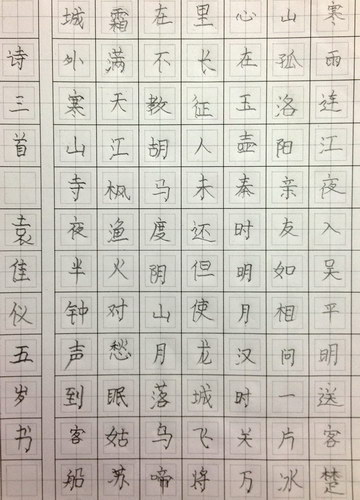 寒雨连江夜入吴平明送客楚
山孤洛阳亲友如相问一片冰
心在玉壶秦时明月汉时关万
里长征人未还但使龙城飞将
在不教胡马度阴山月落乌啼
霜满天江枫渔火对愁眠姑苏
城外寒山寺夜半钟声到客船
诗三首 袁佳仪五岁书